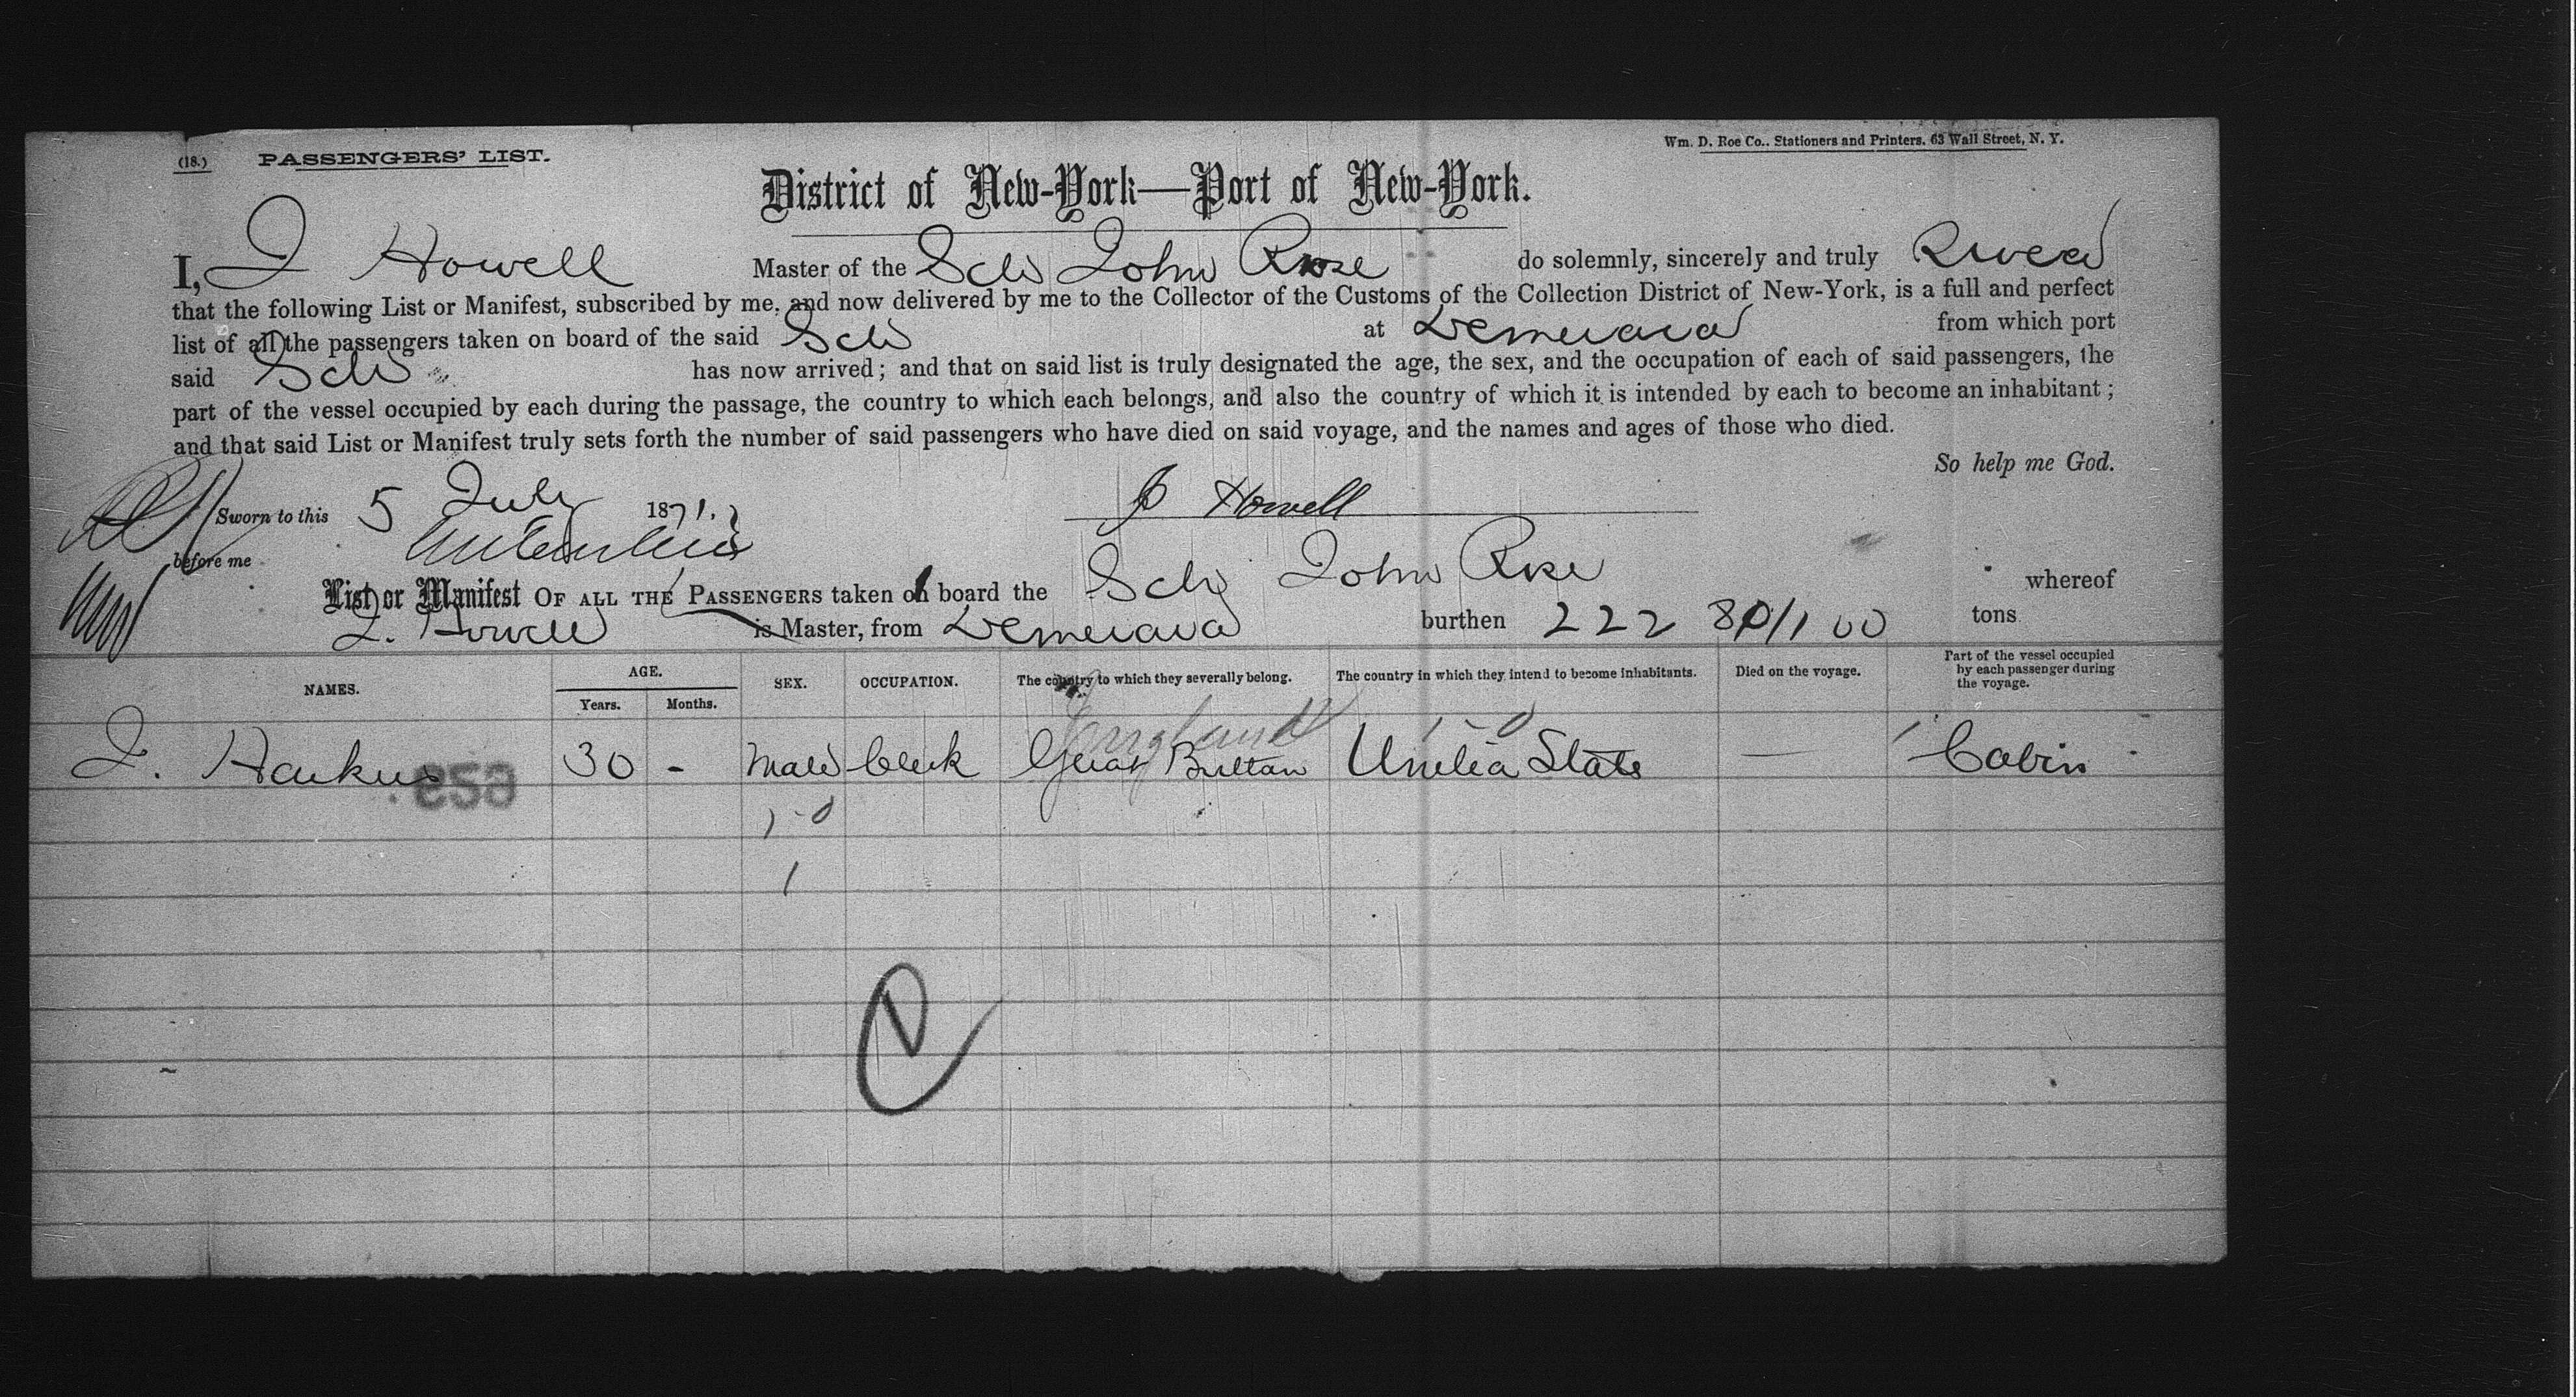 (18.) PASSENGERS' LIST. Wm. D. Roe Co., Stationers and Printers. 63 Wall Street, N. Y.
District of New-York—Port of New-York.
I, J Howell Master of the Sch John Rose do solemnly, sincerely and truly
that the following List or Manifest, subscribed by me, and now delivered by me to the Collector of the Customs of the Collection District of New-York, is a full and perfect
list of all the passengers taken on board of the said Sch at Demerara from which port
said Sch has now arrived; and that on said list is truly designated the age, the sex, and the occupation of each of said passengers, the
part of the vessel occupied by each during the passage, the country to which each belongs, and also the country of which it is intended by each to become an inhabitant;
and that said List or Manifest truly sets forth the number of said passengers who have died on said voyage, and the names and ages of those who died.
So help me God.
Sworn to this 5 July 1871. J Howell
before me
List or Manifest OF ALL THE PASSENGERS taken on board the Sch John Rose whereof
J. Howell is Master, from Demerara burthen 222 80/100 tons
NAMES. AGE. SEX. OCCUPATION. The country to which they severally belong. The country in which they intend to become inhabitants. Died on the voyage. Part of the vessel occupied by each passenger during the voyage.
Years. Months.
England
J. 30 - Male Clerk Great Brittan United State — Cabin
659
1-0
1